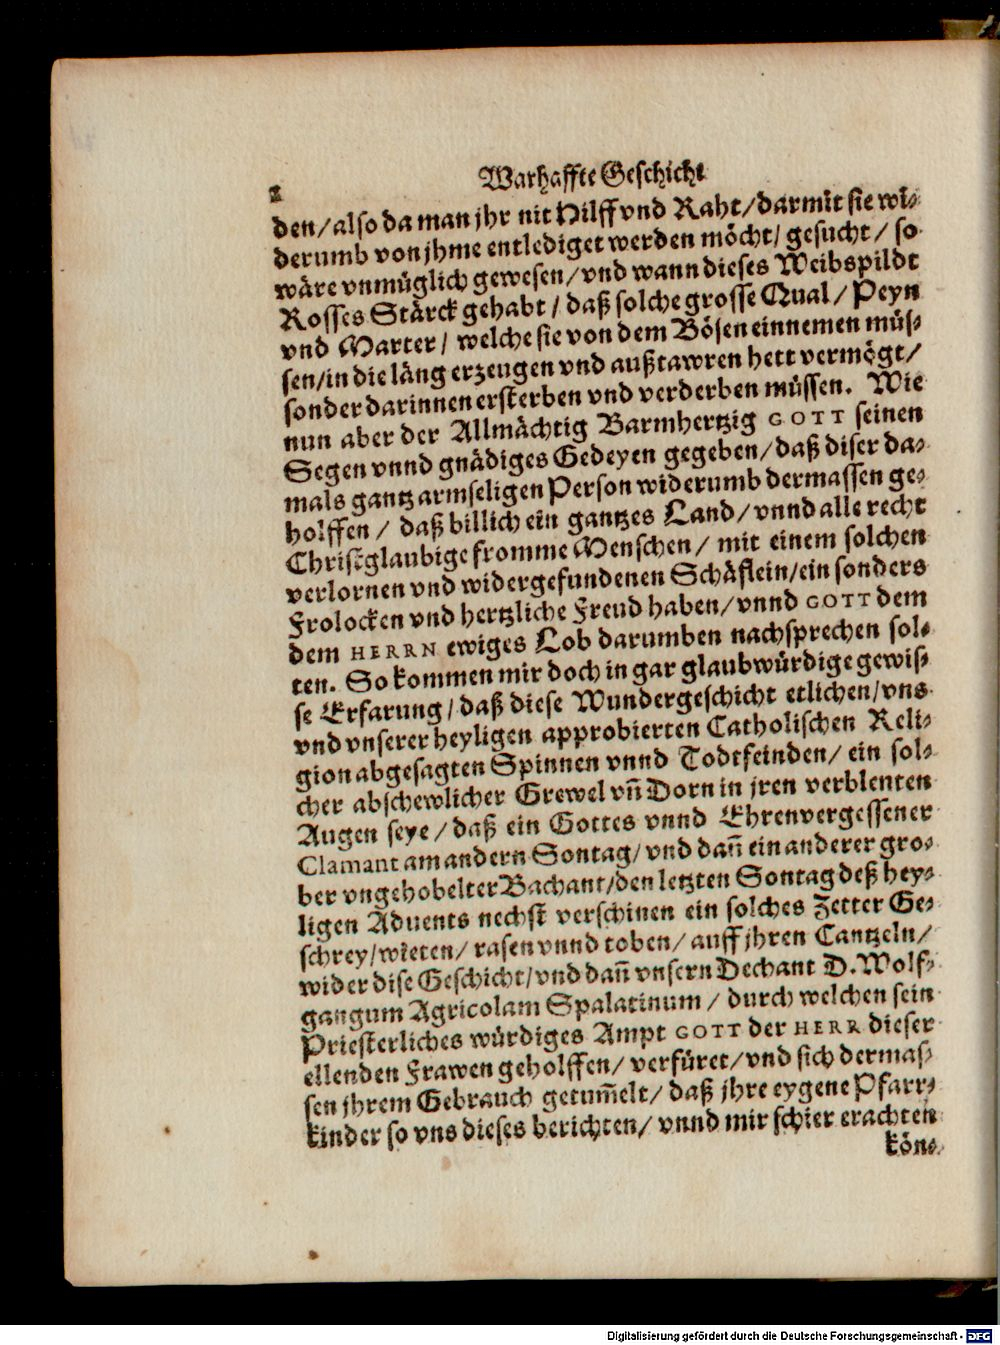 2 Warhaffte Geschicht
den/ also da man jhr nit Hilff vnd Raht/ darmit sie wi-
derumb von jhme entlediget werden möcht/ gesucht/ so
wäre vnmüglich gewesen/ vnd wann dieses Weibspildt
Rosses Stärck gehabt/ daß solche grosse Qual/ Peyn
vnd Marter/ welche sie von dem Bösen einnemen müs-
sen/ in die läng erzeugen vnd außtawren hett vermögt/
sonder darinnen ersterben vnd verderben müssen. Wie
nun aber der Allmächtig Barmhertzig GOTT seinen
Segen vnnd gnädiges Gedeyen gegeben/ daß diser da-
mals gantz armseligen Person widerumb dermassen ge-
holffen/ daß billich ein gantzes Land/ vnnd alle recht
Christglaubige fromme Menschen/ mit einem solchen
verlornen vnd widergefundenen Schäflein/ ein sonders
Frolocken vnd hertzliche Freud haben/ vnnd GOTT dem
dem HERRN ewiges Lob darumben nachsprechen sol-
ten. So kommen mir doch in gar glaubwürdige gewis-
se Erfarung/ daß diese Wundergeschicht etlichen/ vns
vnd vnserer heyligen approbierten Catholischen Reli-
gion abgesagten Spinnen vnnd Todtfeinden/ ein sol-
cher abschewlicher Grewel vñ Dorn in jren verblenten
Augen seye/ daß ein Gottes vnnd Ehrenvergessener
Clamant am andern Sontag/ vnd dañ ein anderer gro-
ber vngehobelter Bachant/ den letzten Sontag deß hey-
ligen Aduents nechst verschinen ein solches Zetter Ge-
schrey/ wieten/ rasen vnnd toben/ auff jhren Cantzeln/
wider dise Geschicht/ vnd dañ vnsern Dechant D. Wolf-
gangum Agricolam Spalatinum/ durch welchen sein
Priesterliches würdiges Ampt GOTT der HERR dieser
ellenden Frawen geholffen/ verfüret/ vnd sich dermas-
sen jhrem Gebrauch getum̃elt/ daß jhre eygene Pfarr-
kinder so vns dieses berichten/ vnnd mir schier erachten
kön-
Digitalisierung gefördert durch die Deutsche Forschungsgemeinschaft - DFG